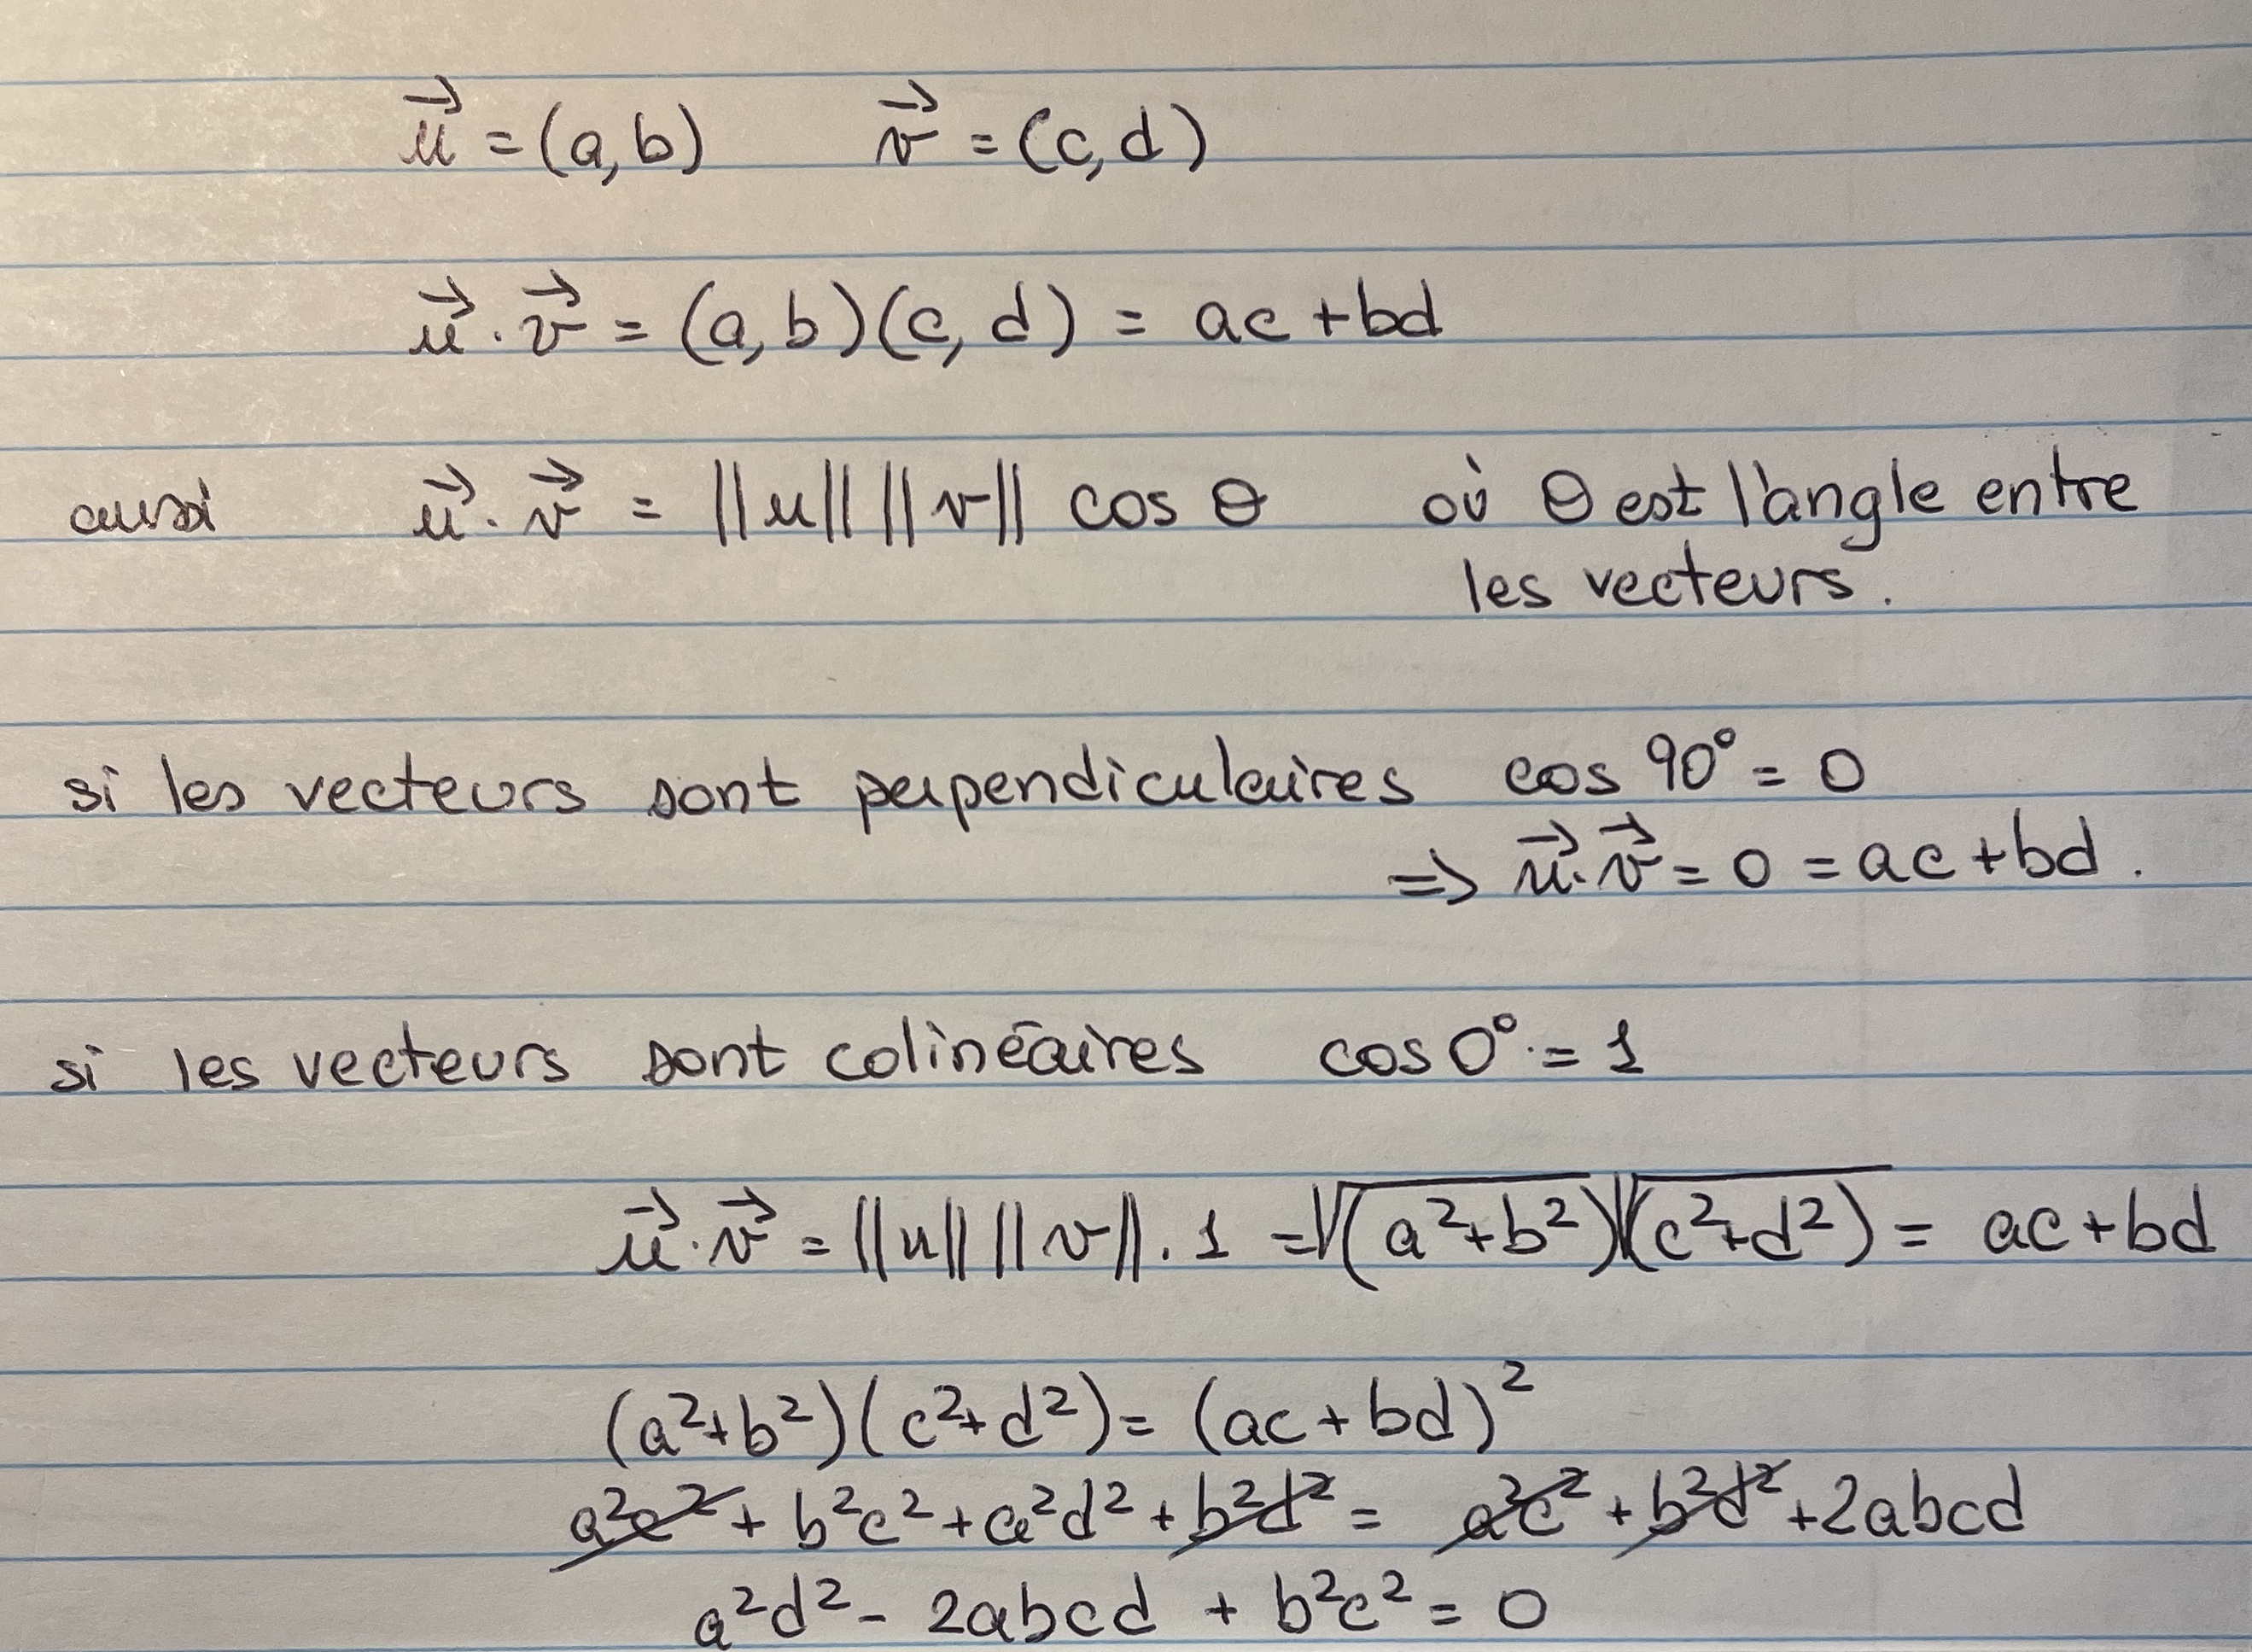 u⃗ = (a, b) v⃗ = (c, d)
u⃗ · v⃗ = (a, b)(c, d) = ac + bd
aussi u⃗ · v⃗ = ||u|| ||v|| cos θ où θ est l'angle entre
les vecteurs.
si les vecteurs sont perpendiculaires cos 90° = 0
=> u⃗ · v⃗ = 0 = ac + bd.
si les vecteurs sont colinéaires cos 0° = 1
u⃗ · v⃗ = ||u|| ||v|| . 1 = √(a²+b²) √(c²+d²) = ac + bd
(a²+b²)(c²+d²) = (ac + bd)²
a²c² + b²c² + a²d² + b²d² = a²c² + b²d² + 2abcd
a²d² - 2abcd + b²c² = 0